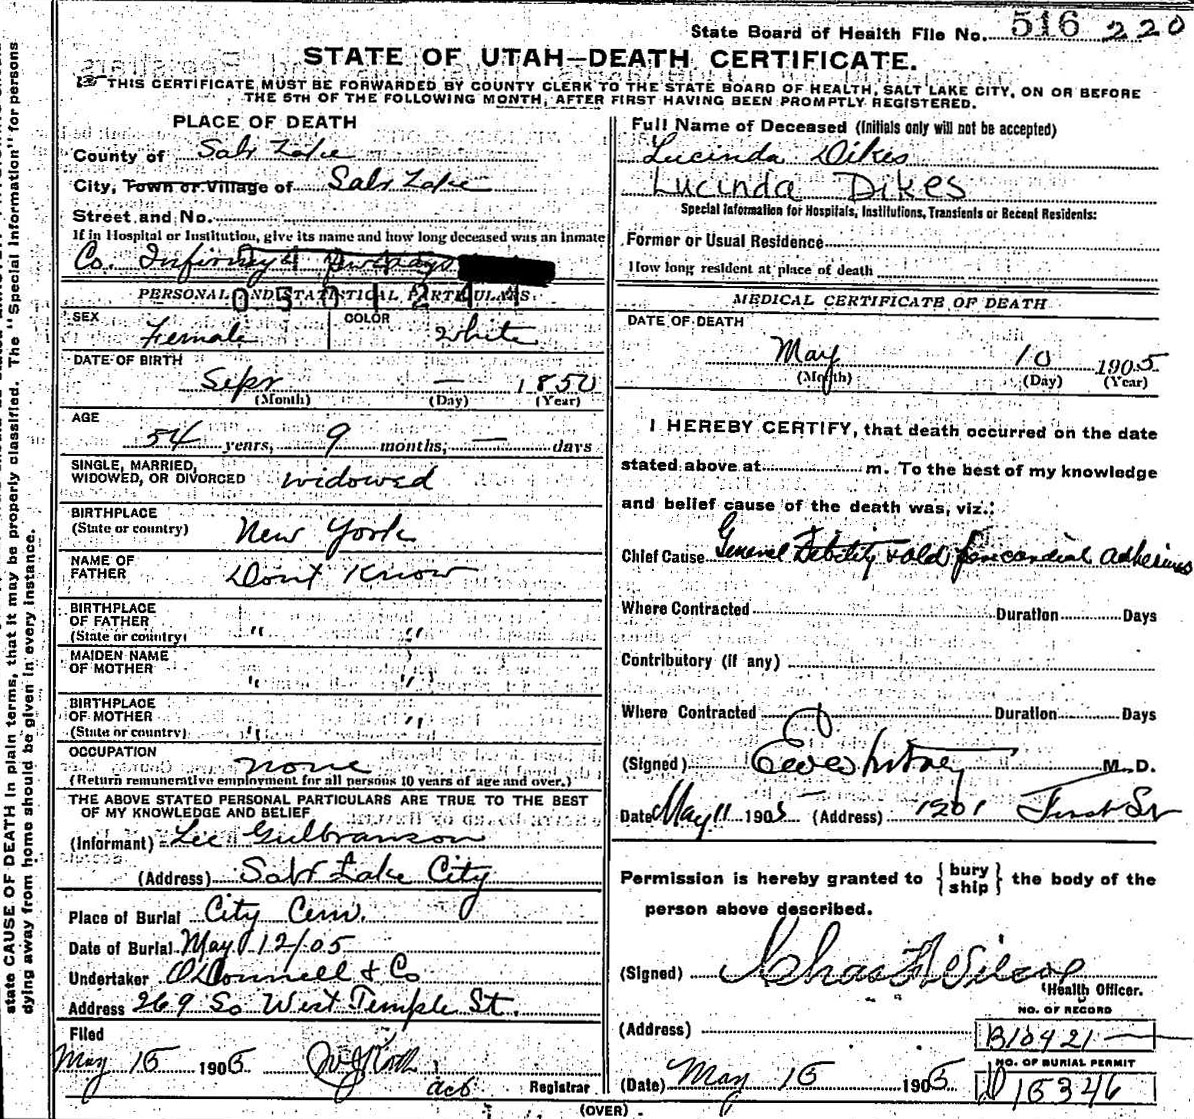 State Board of Health File No. 516 220
STATE OF UTAH—DEATH CERTIFICATE.
THIS CERTIFICATE MUST BE FORWARDED BY COUNTY CLERK TO THE STATE BOARD OF HEALTH, SALT LAKE CITY, ON OR BEFORE
THE 5TH OF THE FOLLOWING MONTH, AFTER FIRST HAVING BEEN PROMPTLY REGISTERED.
state CAUSE OF DEATH in plain terms, that it may be properly classified. The "Special Information" for persons
dying away from home should be given in every instance.
PLACE OF DEATH
County of Salt Lake
City, Town or Village of Salt Lake
Street and No.
If in Hospital or Institution, give its name and how long deceased was an inmate
Co. Infirmy 4 days
PERSONAL AND STATISTICAL PARTICULARS.
SEX Female
COLOR White
DATE OF BIRTH
Sept — 1850
(Month) (Day) (Year)
AGE
54 years, 9 months, — days
SINGLE, MARRIED,
WIDOWED, OR DIVORCED widowed
BIRTHPLACE
(State or country) New York
NAME OF
FATHER Dont Know
BIRTHPLACE
OF FATHER
(State or country) " "
MAIDEN NAME
OF MOTHER " "
BIRTHPLACE
OF MOTHER
(State or country) " "
OCCUPATION none
(Return remunerative employment for all persons 10 years of age and over.)
THE ABOVE STATED PERSONAL PARTICULARS ARE TRUE TO THE BEST
OF MY KNOWLEDGE AND BELIEF
(Informant) Lee Gulbranson
(Address) Salt Lake City
Place of Burial City Cem.
Date of Burial May 12/05
Undertaker O'Donnell & Co
Address 269 So West Temple St.
Filed
May 15 1905
Registrar
Full Name of Deceased (Initials only will not be accepted)
Lucinda Dikes
Lucinda Dikes
Special Information for Hospitals, Institutions, Transients or Recent Residents:
Former or Usual Residence
How long resident at place of death
MEDICAL CERTIFICATE OF DEATH
DATE OF DEATH
May 10 1905
(Month) (Day) (Year)
I HEREBY CERTIFY, that death occurred on the date
stated above at m. To the best of my knowledge
and belief cause of the death was, viz.:
Chief Cause General Debility & old pericardial adhesions
Where Contracted Duration Days
Contributory (if any)
Where Contracted Duration Days
(Signed) Ewd Whitney M. D.
Date May 11 1905 (Address) 1201 First St
Permission is hereby granted to { bury
ship } the body of the
person above described.
(Signed) Chas F Wilcox
Health Officer.
NO. OF RECORD
(Address) B10421
NO. OF BURIAL PERMIT
(Date) May 15 1905 D 15346
(OVER)